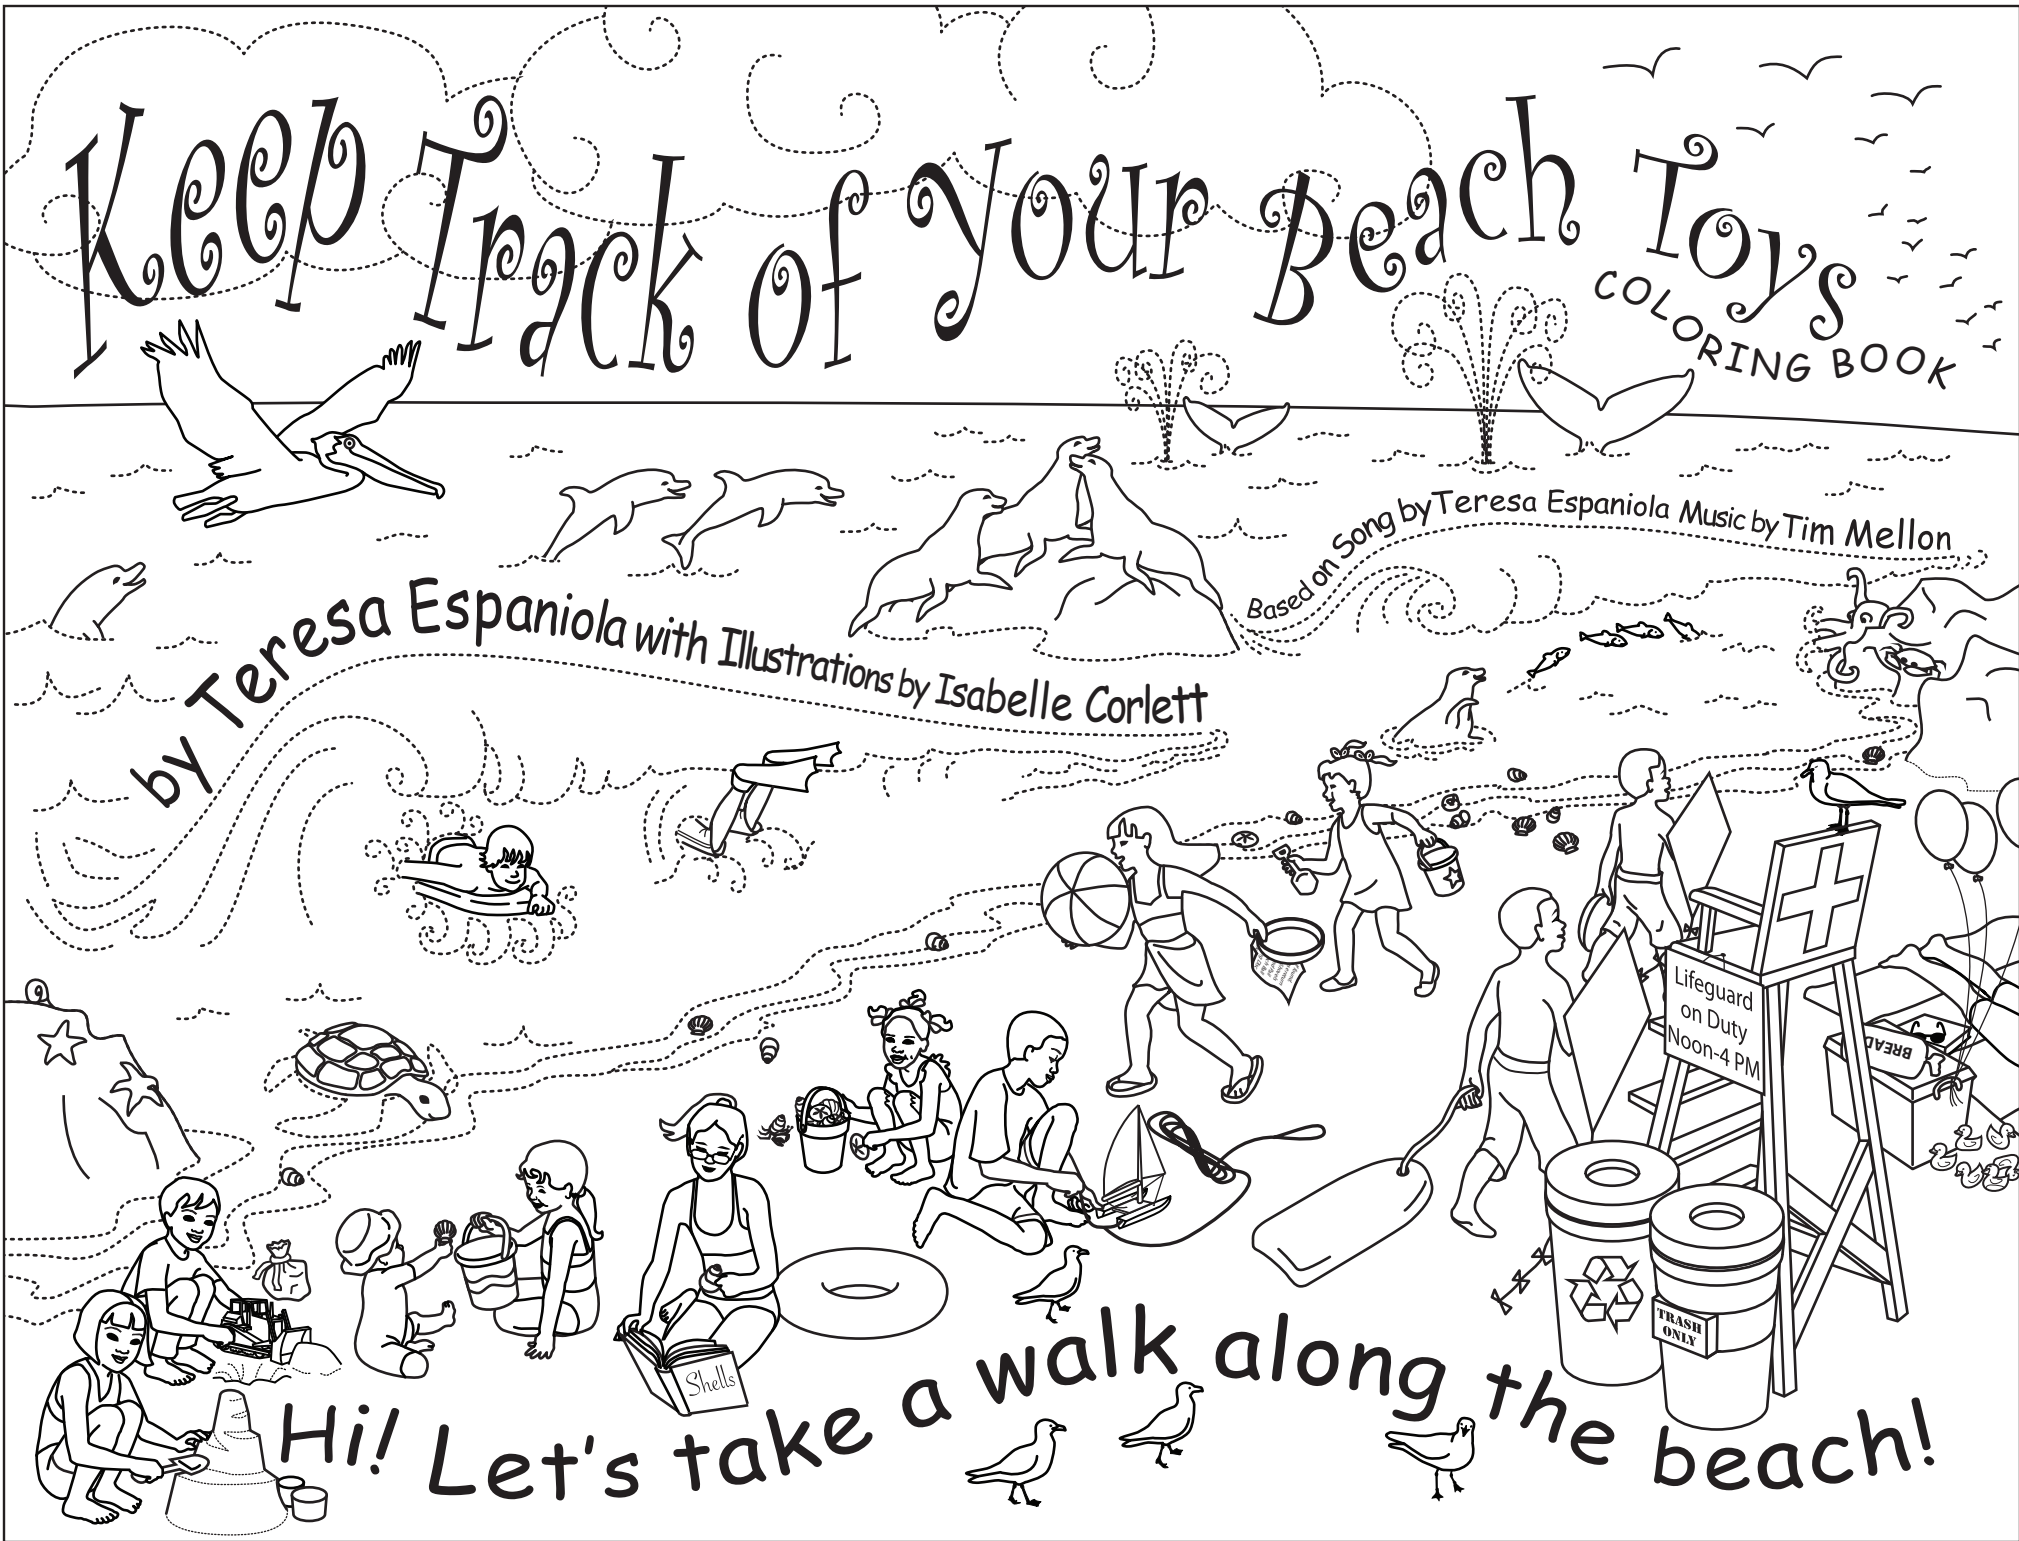 Keep Track of Your Beach Toys
COLORING BOOK
Based on Song by Teresa Espaniola Music by Tim Mellon
by Teresa Espaniola with Illustrations by Isabelle Corlett
Lifeguard
on Duty
Noon-4 PM
BREAD
TRASH
ONLY
Shells
Hi! Let's take a walk along the beach!